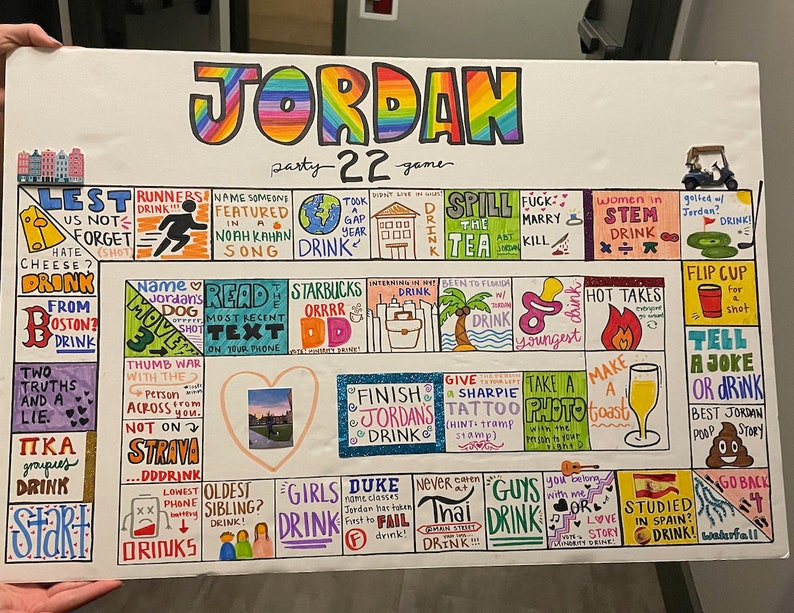 JORDAN
party 22 game
LEST
US NOT
FORGET
(SHOT)
RUNNERS
DRINK!!!
NAME SOMEONE
FEATURED
IN A
NOAH KAHAN
SONG
TOOK
A GAP
YEAR
DRINK
DIDNT LIVE IN GILES!
DRINK
SPILL
THE
TEA
ABT
JORDAN
FUCK
MARRY
KILL
women in
STEM
DRINK
golfed w/
Jordan?
DRINK!
HATE
CHEESE?
DRINK
B FROM
BOSTON?
DRINK
TWO
TRUTHS
AND A
LIE.
ΠKA
groupies
DRINK
START
Name
Jordan's
DOG
orrrrr,
SHOT
MOVE
3
READ THE
MOST RECENT
TEXT
ON YOUR PHONE
STARBUCKS
ORRR
DD
VOTE! MINORITY DRINK!
INTERNING IN NY!
DRINK
BEEN TO FLORIDA
w/
JORDAN
DRINK
youngest drink
HOT TAKES
everyone
go around
FLIP CUP
for a
shot
TELL
A JOKE
OR drink
BEST JORDAN
POOP STORY
GO BACK
4
waterfall
THUMB WAR
WITH THE
Person
ACROSS from
you.
loser
drinks
NOT ON
STRAVA
...DDDRINK
FINISH
JORDAN'S
DRINK
GIVE THE PERSON
TO YOUR LEFT
A SHARPIE
TATTOO
(HINT: tramp
stamp)
TAKE A
PHOTO
with the
Person to your
right
MAKE
A
toast
LOWEST
PHONE
battery
DRINKS
OLDEST
SIBLING?
DRINK!
GIRLS
DRINK!
DUKE
name classes
Jordan has taken
First to FAIL
drink!
F
Never eaten at
Thai
@ MAIN STREET
DRINK!!!
GUYS
DRINK!
you belong
with me
OR
LOVE
STORY
VOTE
MINORITY DRINK!
STUDIED
IN SPAIN?
DRINK!